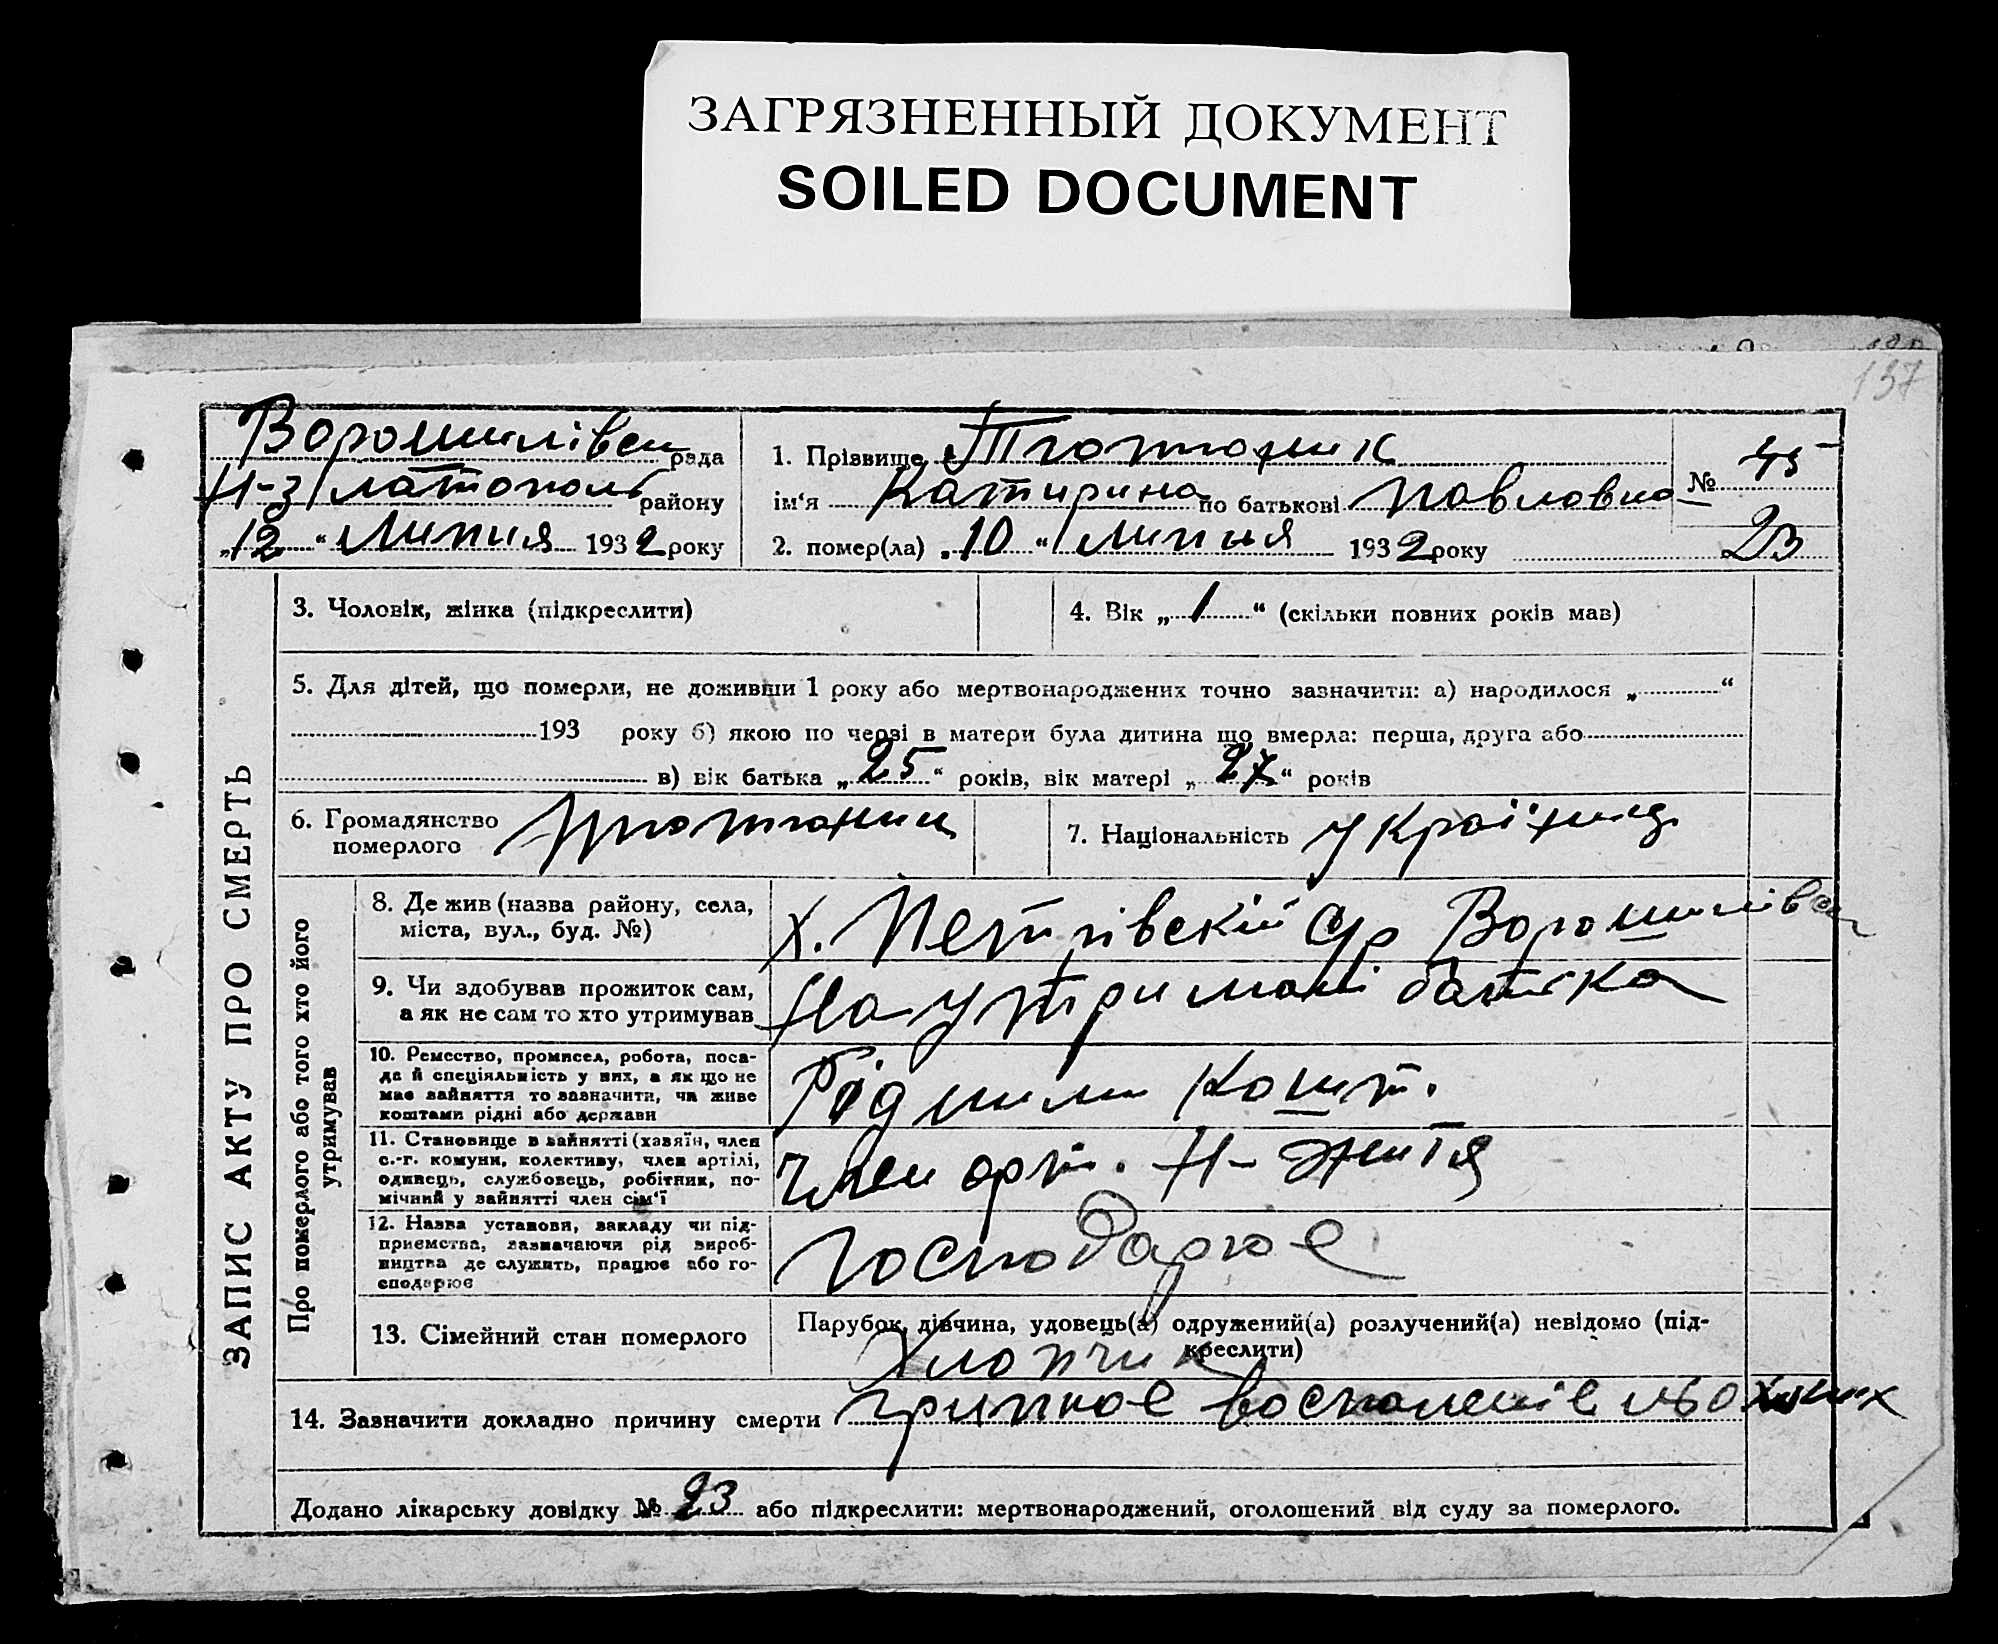 ЗАГРЯЗНЕННЫЙ ДОКУМЕНТ
SOILED DOCUMENT
137
Ворошилівськ рада
Н-Златопол району
„12“ Липня 1932 року
1. Прізвище
ім'я Катирина по батькові Павловна
2. помер(ла) „10“ Липня 1932 року
№ 45
23
ЗАПИС АКТУ ПРО СМЕРТЬ
3. Чоловік, жінка (підкреслити)
4. Вік „1“ (скільки повних років мав)
5. Для дітей, що померли, не доживши 1 року або мертвонароджених точно зазначити: а) народилося „ “
193 року б) якою по черзі в матери була дитина що вмерла: перша, друга або
в) вік батька „25“ років, вік матері „27“ років
6. Громадянство
померлого
7. Національність Українця
Про померлого або того хто його
утримував
8. Де жив (назва району, села,
міста, вул., буд. №)
х. Петрівскій С/р Ворошилівськ
9. Чи здобував прожиток сам,
а як не сам то хто утримував
На утримані батька
10. Ремество, промисел, робота, поса-
да й спеціяльність у них, а як що не
має зайняття то зазначити, чи живе
коштами рідні або держави
Рідними кошт.
11. Становище в зайнятті (хазяїн, член
с.-г. комуни, колективу, член артілі,
одинець, службовець, робітник, по-
мічний у зайнятті член сім'ї
Член арт. Н-Життя
12. Назва установи, закладу чи під-
приємства, зазначаючи рід вироб-
ництва де служить, працює або го-
сподарює
Господарює
13. Сімейний стан померлого
Парубок, дівчина, удовець(а) одружений(а) розлучений(а) невідомо (під-
креслити)
Хлопчик
14. Зазначити докладно причину смерти грипное воспаленіе льохких
Додано лікарську довідку № 23 або підкреслити: мертвонароджений, оголошений від суду за померлого.